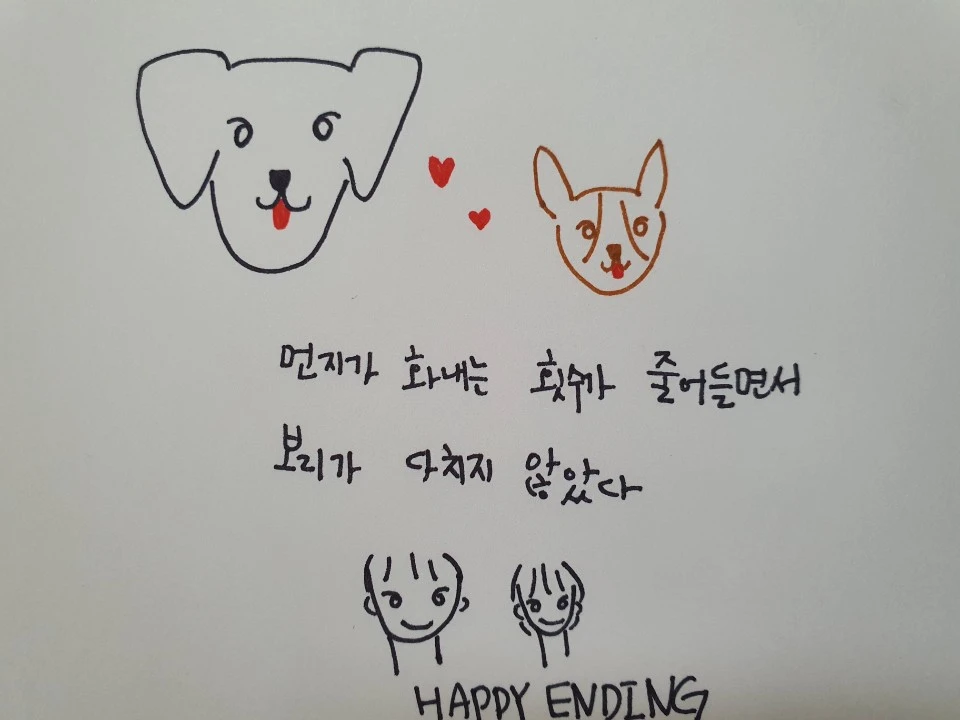 먼지가 화내는 횟수가 줄어들면서
보리가 다치지 않았다
HAPPY ENDING